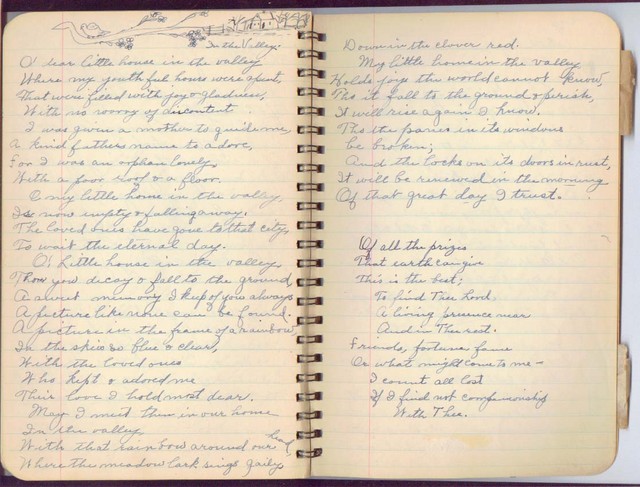 In the Valley.
O' dear little house in the valley
Where my youthful houres were spent,
That were filled with joy & gladness,
With no sorrow of discontent
I was given a mother to guide me,
A kind fathers name to adore,
For I was an orphan lonely,
With a poor roof & a floor.
O my little home in the valley,
Is now empty & falling away.
The loved ones have gone to that city,
To wait the eternal day.
O! Little house in the valley,
Thow you decay & fall to the ground,
A sweet memory I keep of you always
A picture like none can be found.
A picture in the frame of a rainbow,
In the skies so blue & clear,
With the loved ones
Who kept & adored me
Their love I hold most dear.
May I meet them in our home
In the valley
With that rainbow around our head,
Where the meadow lark sings gaily
Down in the clover red.
My little home in the valley
Holds joys the world cannot know,
Tho it fall to the ground & perish,
It will rise again I know.
Tho the panes in its windows
be broken;
And the locks on its doors in rust,
It will be renewed in the morning
Of that great day I trust.
Of all the prizes
That earth can give
This is the best;
To find Thee Lord,
A living presence near
And in Thee rest.
Friends, fortune fame
Or what might come to me –
I count all lost
If I find not companionship
With Thee.